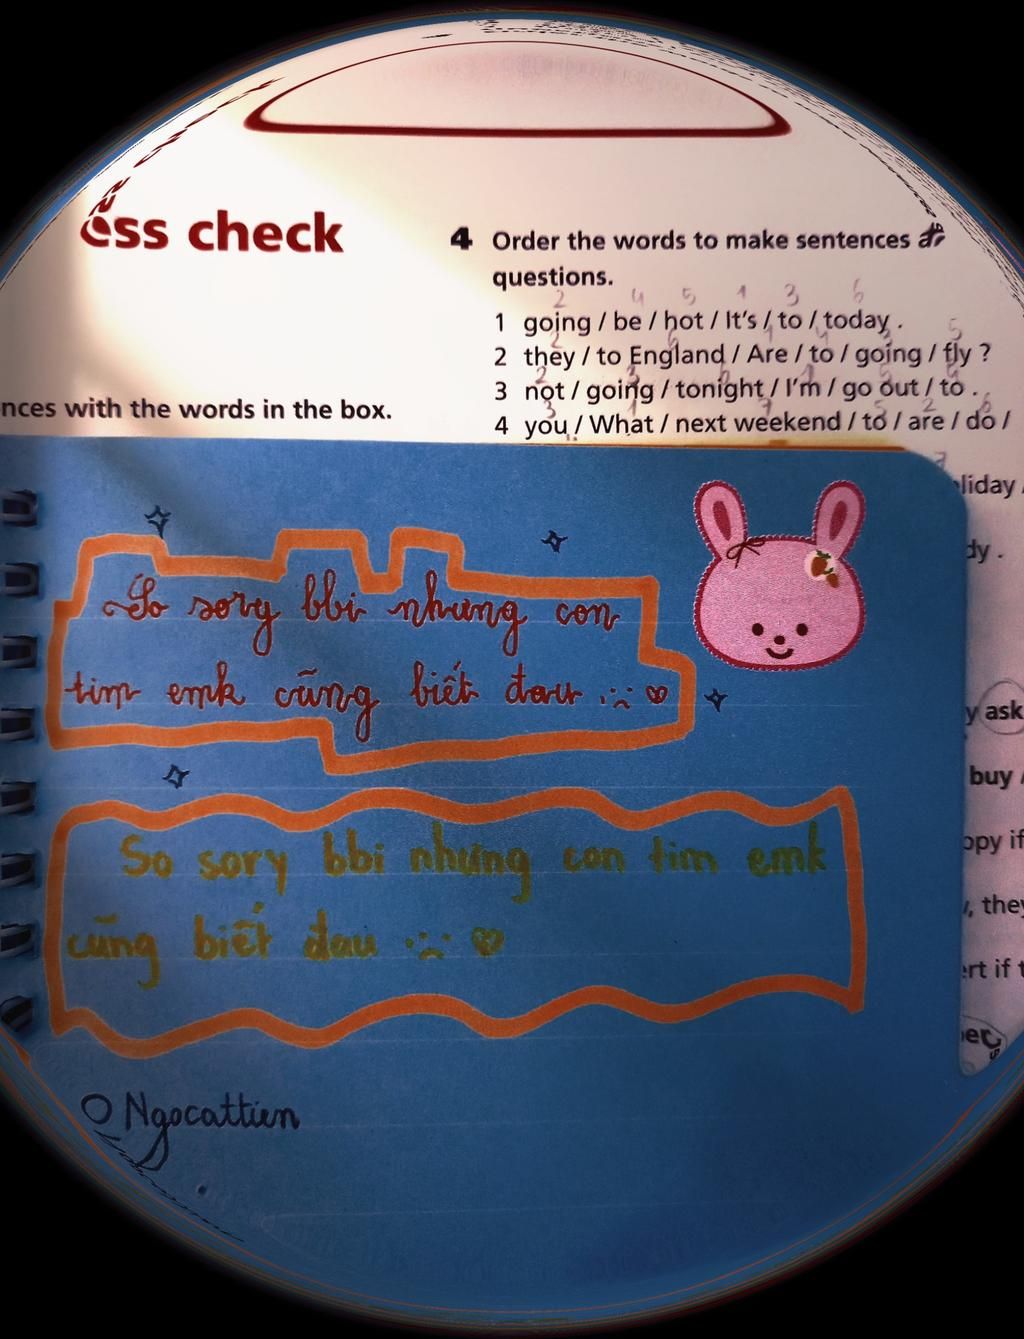 ess check
nces with the words in the box.
4 Order the words to make sentences
questions.
2 4 5 1 3 6
1 going / be / hot / It's / to / today .
2 they / to England / Are / to / going / fly ?
3 not / going / tonight / I'm / go out / to .
4 you / What / next weekend / to / are / do /
liday
dy .
y ask
buy
ppy if
, they
ert if t
So sory bbi nhưng con
tim emk cũng biết đau
So sory bbi nhưng con tim emk
cũng biết đau
Ngocattien